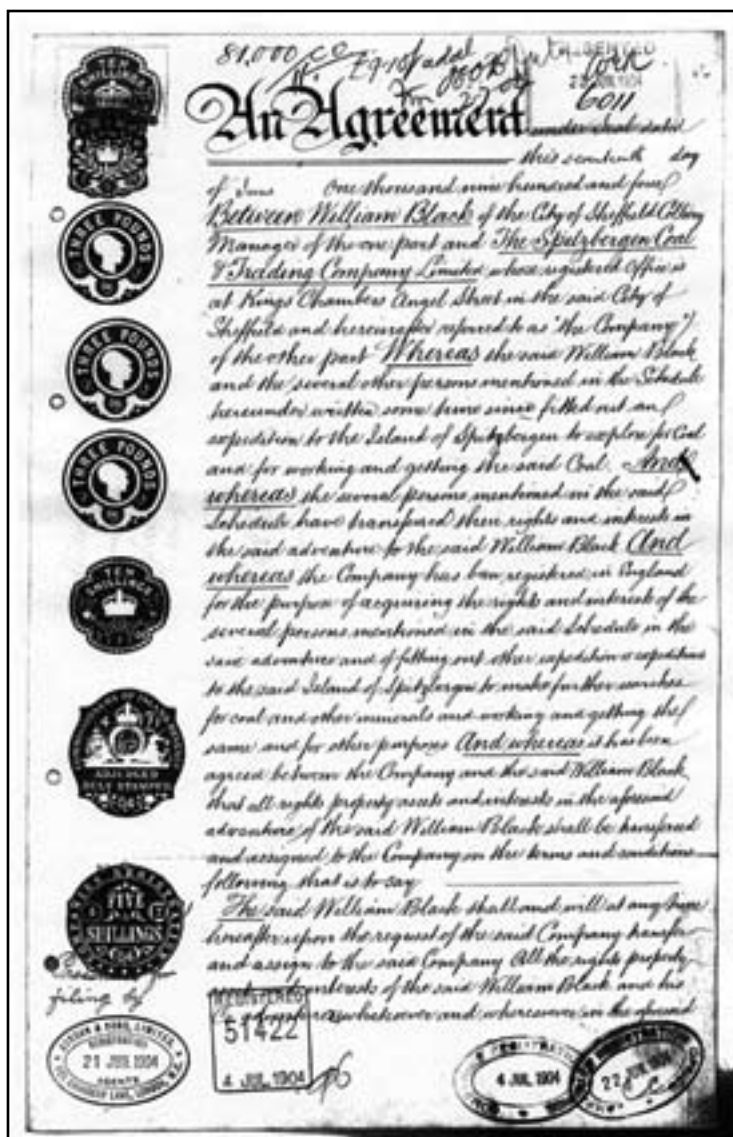 81,000
An Agreement under seal dated
this seventeenth day
of June One thousand nine hundred and four
Between William Black of the City of Sheffield Colliery
Manager of the one part and The Spitzbergen Coal
& Trading Company Limited whose registered office is
at Kings Chambers Angel Street in the said City of
Sheffield and hereinafter referred to as "the Company"
of the other part Whereas the said William Black
and the several other persons mentioned in the Schedule
hereunder written some time since fitted out an
expedition to the Island of Spitzbergen to explore for Coal
and for working and getting the said Coal. And
whereas the several persons mentioned in the said
Schedule have transferred their rights and interests in
the said adventure to the said William Black And
whereas the Company has been registered in England
for the purpose of acquiring the rights and interests of the
several persons mentioned in the said Schedule in the
said adventure and of fitting out other expedition or expeditions
to the said Island of Spitzbergen to make further searches
for coal and other minerals and working and getting the
same and for other purposes And whereas it has been
agreed between the Company and the said William Black
that all rights property assets and interests in the aforesaid
adventure of the said William Black shall be transferred
and assigned to the Company on the terms and conditions
following that is to say
The said William Black shall and will at any time
hereafter upon the request of the said Company transfer
and assign to the said Company All the rights property
assets and interests of the said William Black and his
whatsoever and wheresoever in the aforesaid
TEN
SHILLINGS
THREE POUNDS
THREE POUNDS
THREE POUNDS
TEN
SHILLINGS
ADJUDGED
DULY STAMPED
FIVE
SHILLINGS
filing by
LIMITED
21 JUN 1904
AGENTS
REGISTERED
51422
4 JUL 1904
REGISTRATION
4 JUL 1904
REGISTRATION
22 JUN 1904
1904
6011